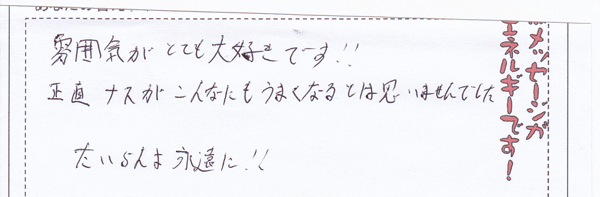 雰囲気がとても大好きでーす!!
正直 ナスがこんなにもうまくなるとは思いませんでした
たいらんま 永遠に!!
メッセージが
エネルギーです!